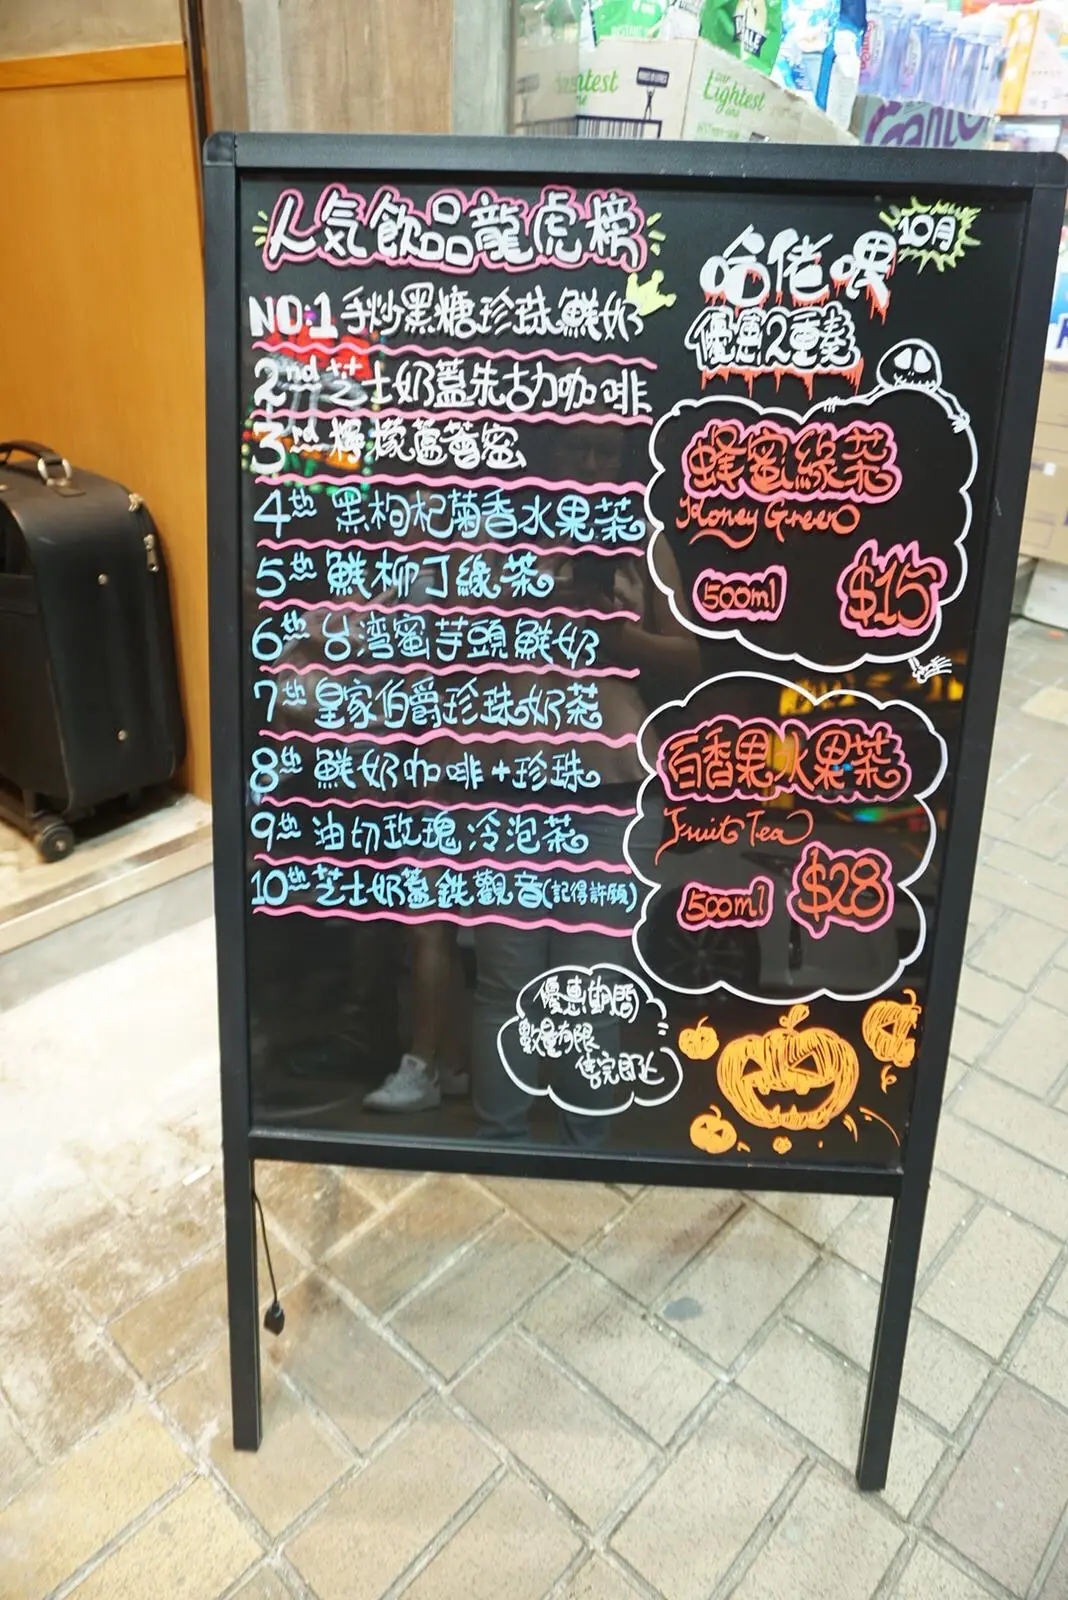 人気飲品龍虎榜
NO.1 手炒黑糖珍珠鮮奶
2nd 芝士奶蓋朱古力咖啡
3rd 檸檬蘆薈蜜
4th 黑枸杞菊香水果茶
5th 鮮柳丁綠茶
6th 台湾蜜芋頭鮮奶
7th 皇家伯爵珍珠奶茶
8th 鮮奶咖啡+珍珠
9th 油切玫瑰冷泡茶
10th 芝士奶蓋鉄觀音(記得許願)
10月
哈佬喂
優惠2重奏
蜂蜜綠茶
Honey Green
500ml
$15
百香果水果茶
Fruit Tea
500ml
$28
優惠期間
數量有限
售完即止
Lightest
Lightest